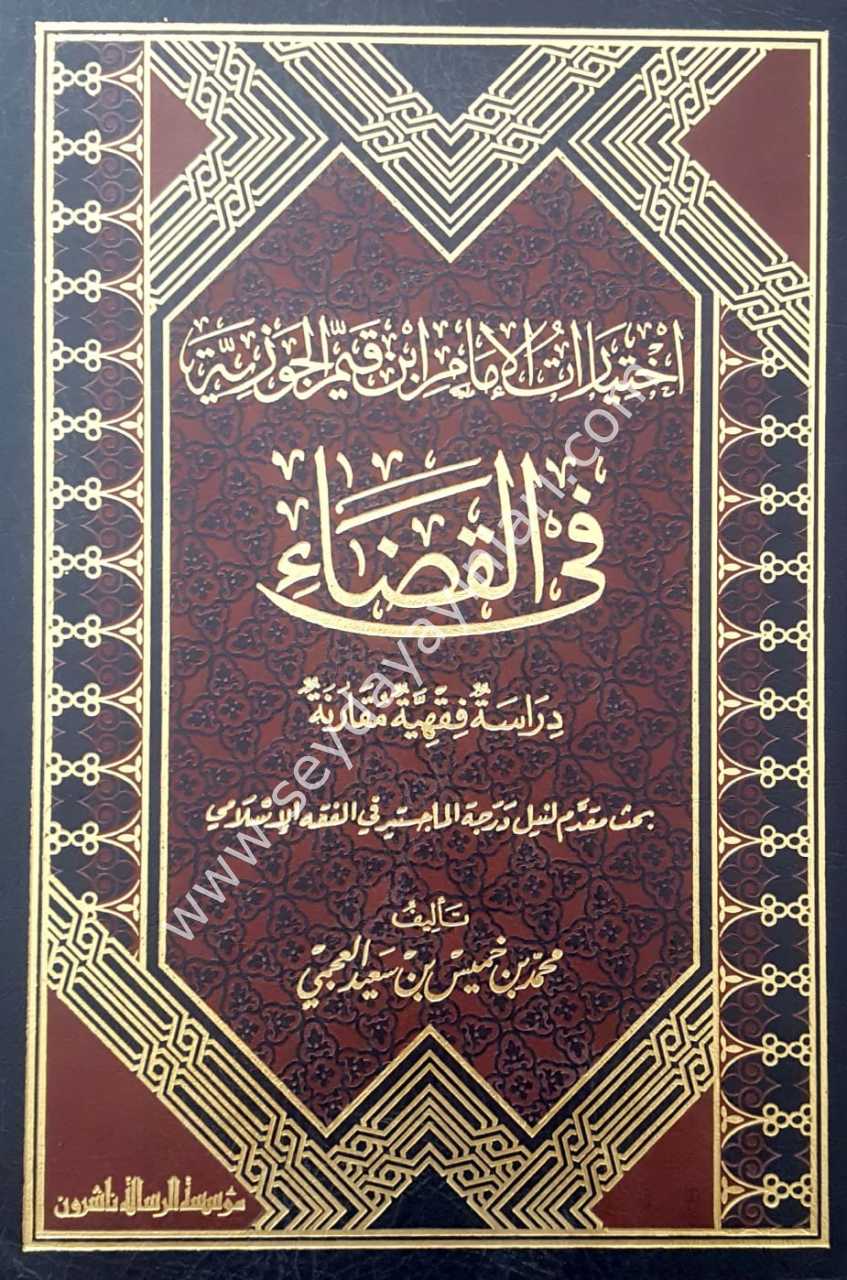 اختيارات الإمام ابن قيم الجوزية
في القضاء
دراسة فقهية مقارنة
بحث مقدم لنيل درجة الماجستير في الفقه الإسلامي
تأليف
محمد بن خميس بن سعيد العجمي
مؤسسة الرسالة ناشرون
www.seydayayinlari.com